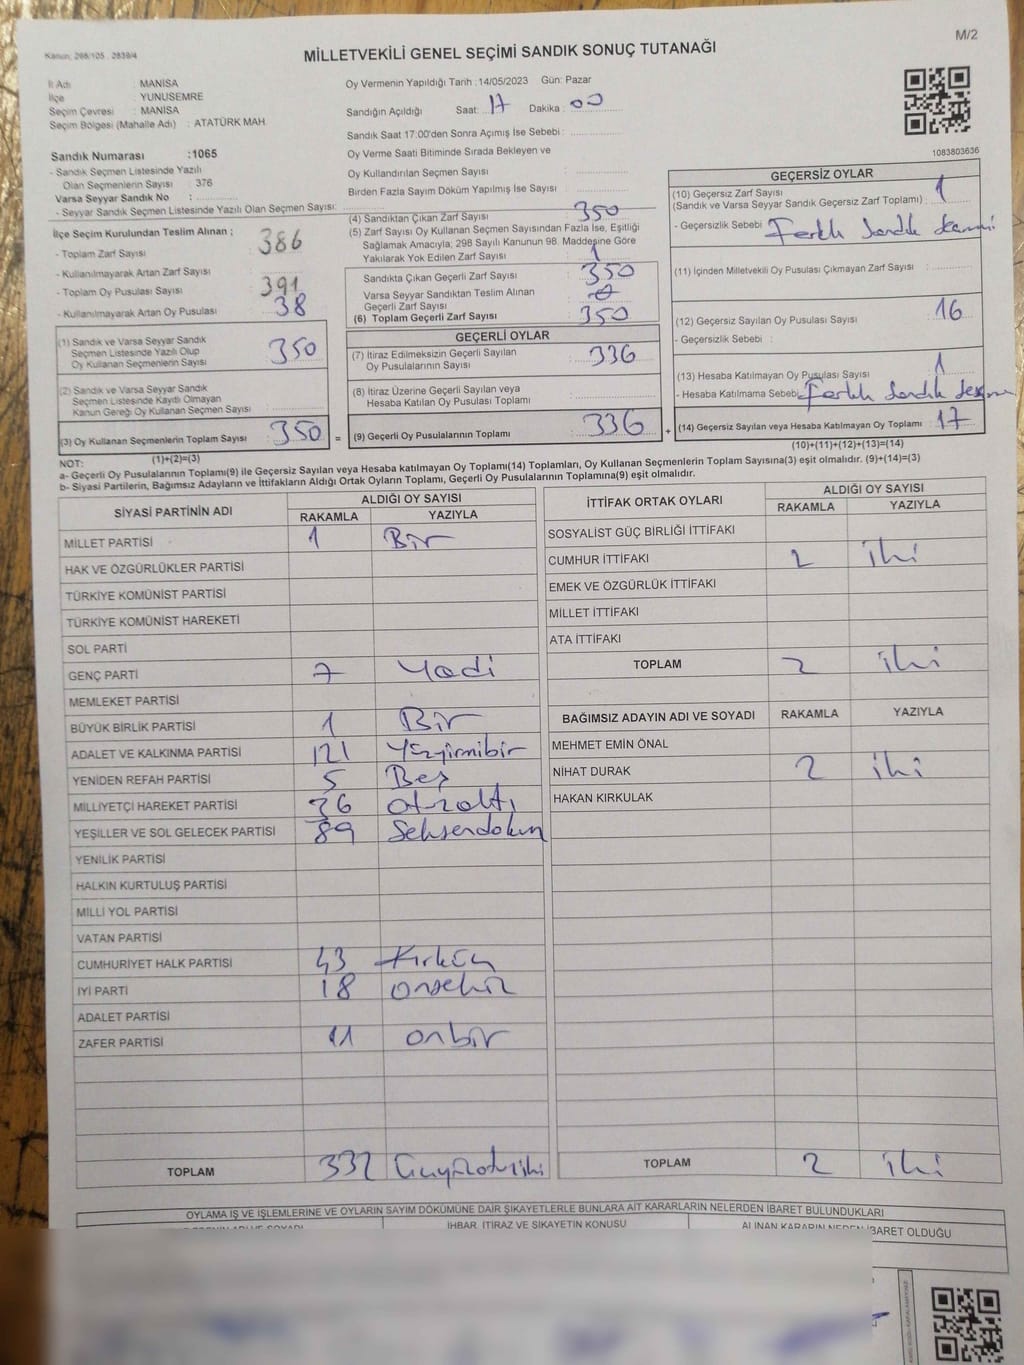 Kanun: 298/105 , 2839/4
MİLLETVEKİLİ GENEL SEÇİMİ SANDIK SONUÇ TUTANAĞI
M/2
İl Adı : MANİSA
İlçe : YUNUSEMRE
Seçim Çevresi : MANİSA
Seçim Bölgesi (Mahalle Adı) : ATATÜRK MAH.
Sandık Numarası :1065
- Sandık Seçmen Listesinde Yazılı
Olan Seçmenlerin Sayısı : 376
Varsa Seyyar Sandık No :
- Seyyar Sandık Seçmen Listesinde Yazılı Olan Seçmen Sayısı:
Oy Vermenin Yapıldığı Tarih :14/05/2023 Gün: Pazar
Sandığın Açıldığı Saat: 17 Dakika : 00
Sandık Saat 17:00'den Sonra Açımış İse Sebebi :
Oy Verme Saati Bitiminde Sırada Bekleyen ve
Oy Kullandırılan Seçmen Sayısı :
Birden Fazla Sayım Döküm Yapılmış İse Sayısı :
1083803636
İlçe Seçim Kurulundan Teslim Alınan ;
- Toplam Zarf Sayısı : 386
- Kullanılmayarak Artan Zarf Sayısı :
- Toplam Oy Pusulası Sayısı : 391
- Kullanılmayarak Artan Oy Pusulası : 38
(1) Sandık ve Varsa Seyyar Sandık
Seçmen Listesinde Yazılı Olup
Oy Kullanan Seçmenlerin Sayısı : 350
(2) Sandık ve Varsa Seyyar Sandık
Seçmen Listesinde Kaydı Olmayan
Kanun Gereği Oy Kullanan Seçmen Sayısı :
(3) Oy Kullanan Seçmenlerin Toplam Sayısı : 350 =
(1)+(2)=(3)
(4) Sandıktan Çıkan Zarf Sayısı : 350
(5) Zarf Sayısı Oy Kullanan Seçmen Sayısından Fazla İse, Eşitliği
Sağlamak Amacıyla, 298 Sayılı Kanunun 98. Maddesine Göre
Yakılarak Yok Edilen Zarf Sayısı : 1
Sandıkta Çıkan Geçerli Zarf Sayısı : 350
Varsa Seyyar Sandıktan Teslim Alınan
Geçerli Zarf Sayısı :
(6) Toplam Geçerli Zarf Sayısı : 350
GEÇERLİ OYLAR
(7) İtiraz Edilmeksizin Geçerli Sayılan
Oy Pusulalarının Sayısı : 336
(8) İtiraz Üzerine Geçerli Sayılan veya
Hesaba Katılan Oy Pusulası Toplamı :
(9) Geçerli Oy Pusulalarının Toplamı : 336 +
GEÇERSİZ OYLAR
(10) Geçersiz Zarf Sayısı
(Sandık ve Varsa Seyyar Sandık Geçersiz Zarf Toplamı) : 1
- Geçersizlik Sebebi : Farklı Sandık
(11) İçinden Milletvekili Oy Pusulası Çıkmayan Zarf Sayısı :
(12) Geçersiz Sayılan Oy Pusulası Sayısı : 16
- Geçersizlik Sebebi :
(13) Hesaba Katılmayan Oy Pusulası Sayısı : 1
- Hesaba Katılmama Sebebi: Farklı Sandık
(14) Geçersiz Sayılan veya Hesaba Katılmayan Oy Toplamı : 17
(10)+(11)+(12)+(13)=(14)
NOT:
a- Geçerli Oy Pusulalarının Toplamı(9) ile Geçersiz Sayılan veya Hesaba katılmayan Oy Toplamı(14) Toplamları, Oy Kullanan Seçmenlerin Toplam Sayısına(3) eşit olmalıdır. (9)+(14)=(3)
b- Siyasi Partilerin, Bağımsız Adayların ve İttifakların Aldığı Ortak Oyların Toplamı, Geçerli Oy Pusulalarının Toplamına(9) eşit olmalıdır.
SİYASİ PARTİNİN ADI
ALDIĞI OY SAYISI
RAKAMLA YAZIYLA
MİLLET PARTİSİ 1 Bir
HAK VE ÖZGÜRLÜKLER PARTİSİ
TÜRKİYE KOMÜNİST PARTİSİ
TÜRKİYE KOMÜNİST HAREKETİ
SOL PARTİ
GENÇ PARTİ 7 Yedi
MEMLEKET PARTİSİ
BÜYÜK BİRLİK PARTİSİ 1 Bir
ADALET VE KALKINMA PARTİSİ 121 Yüzyirmibir
YENİDEN REFAH PARTİSİ 5 Beş
MİLLİYETÇİ HAREKET PARTİSİ 36 otuzaltı
YEŞİLLER VE SOL GELECEK PARTİSİ 89 Seksendokuz
YENİLİK PARTİSİ
HALKIN KURTULUŞ PARTİSİ
MİLLİ YOL PARTİSİ
VATAN PARTİSİ
CUMHURİYET HALK PARTİSİ 43 Kırküç
İYİ PARTİ 18 onsekiz
ADALET PARTİSİ
ZAFER PARTİSİ 11 onbir
TOPLAM 332 Üçyüzotuziki
İTTİFAK ORTAK OYLARI
ALDIĞI OY SAYISI
RAKAMLA YAZIYLA
SOSYALİST GÜÇ BİRLİĞİ İTTİFAKI
CUMHUR İTTİFAKI 2 iki
EMEK VE ÖZGÜRLÜK İTTİFAKI
MİLLET İTTİFAKI
ATA İTTİFAKI
TOPLAM 2 iki
BAĞIMSIZ ADAYIN ADI VE SOYADI RAKAMLA YAZIYLA
MEHMET EMİN ÖNAL
NİHAT DURAK 2 iki
HAKAN KIRKULAK
TOPLAM 2 iki
OYLAMA İŞ VE İŞLEMLERİNE VE OYLARIN SAYIM DÖKÜMÜNE DAİR ŞİKAYETLERLE BUNLARA AİT KARARLARIN NELERDEN İBARET BULUNDUKLARI
İHBAR, İTİRAZ VE ŞİKAYETİN KONUSU
ALINAN KARARIN NEDEN İBARET OLDUĞU